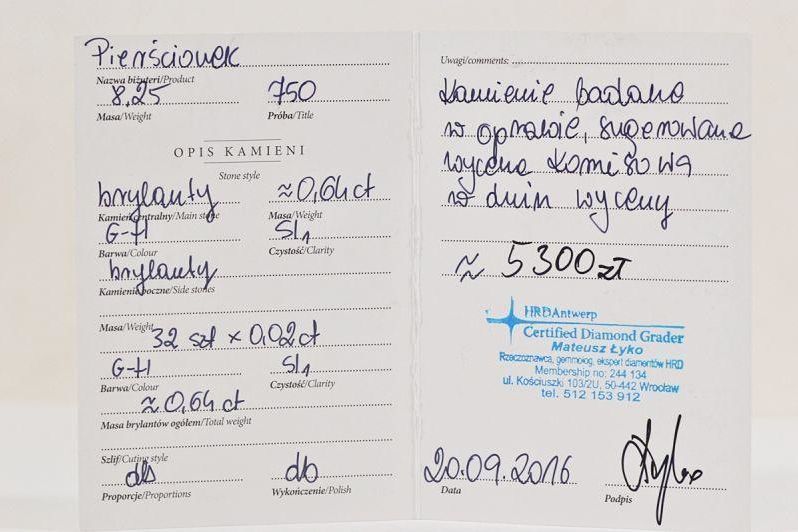 Pierścionek
Nazwa biżuterii/Product
8,25 750
Masa/Weight Próba/Title
OPIS KAMIENI
Stone style
brylanty ≈0,64ct
Kamień centralny/Main stone Masa/Weight
G-H SI1
Barwa/Colour Czystość/Clarity
brylanty
Kamienie boczne/Side stones
Masa/Weight 32 szt x 0,02ct
G-H SI1
Barwa/Colour Czystość/Clarity
≈0,64 ct
Masa brylantów ogółem/Total weight
Szlif/Cuting style
db db
Proporcje/Proportions Wykończenie/Polish
Uwagi/comments:
Kamienie badano
w oprawie, sugerowana
wycena komisowa
w dniu wyceny
≈ 5300zł
HRDAntwerp
Certified Diamond Grader
Mateusz Łyko
Rzeczoznawca, gemmolog, ekspert diamentów HRD
Membership no: 244 134
ul. Kościuszki 103/2U, 50-442 Wrocław
tel. 512 153 912
20.09.2016
Data Podpis